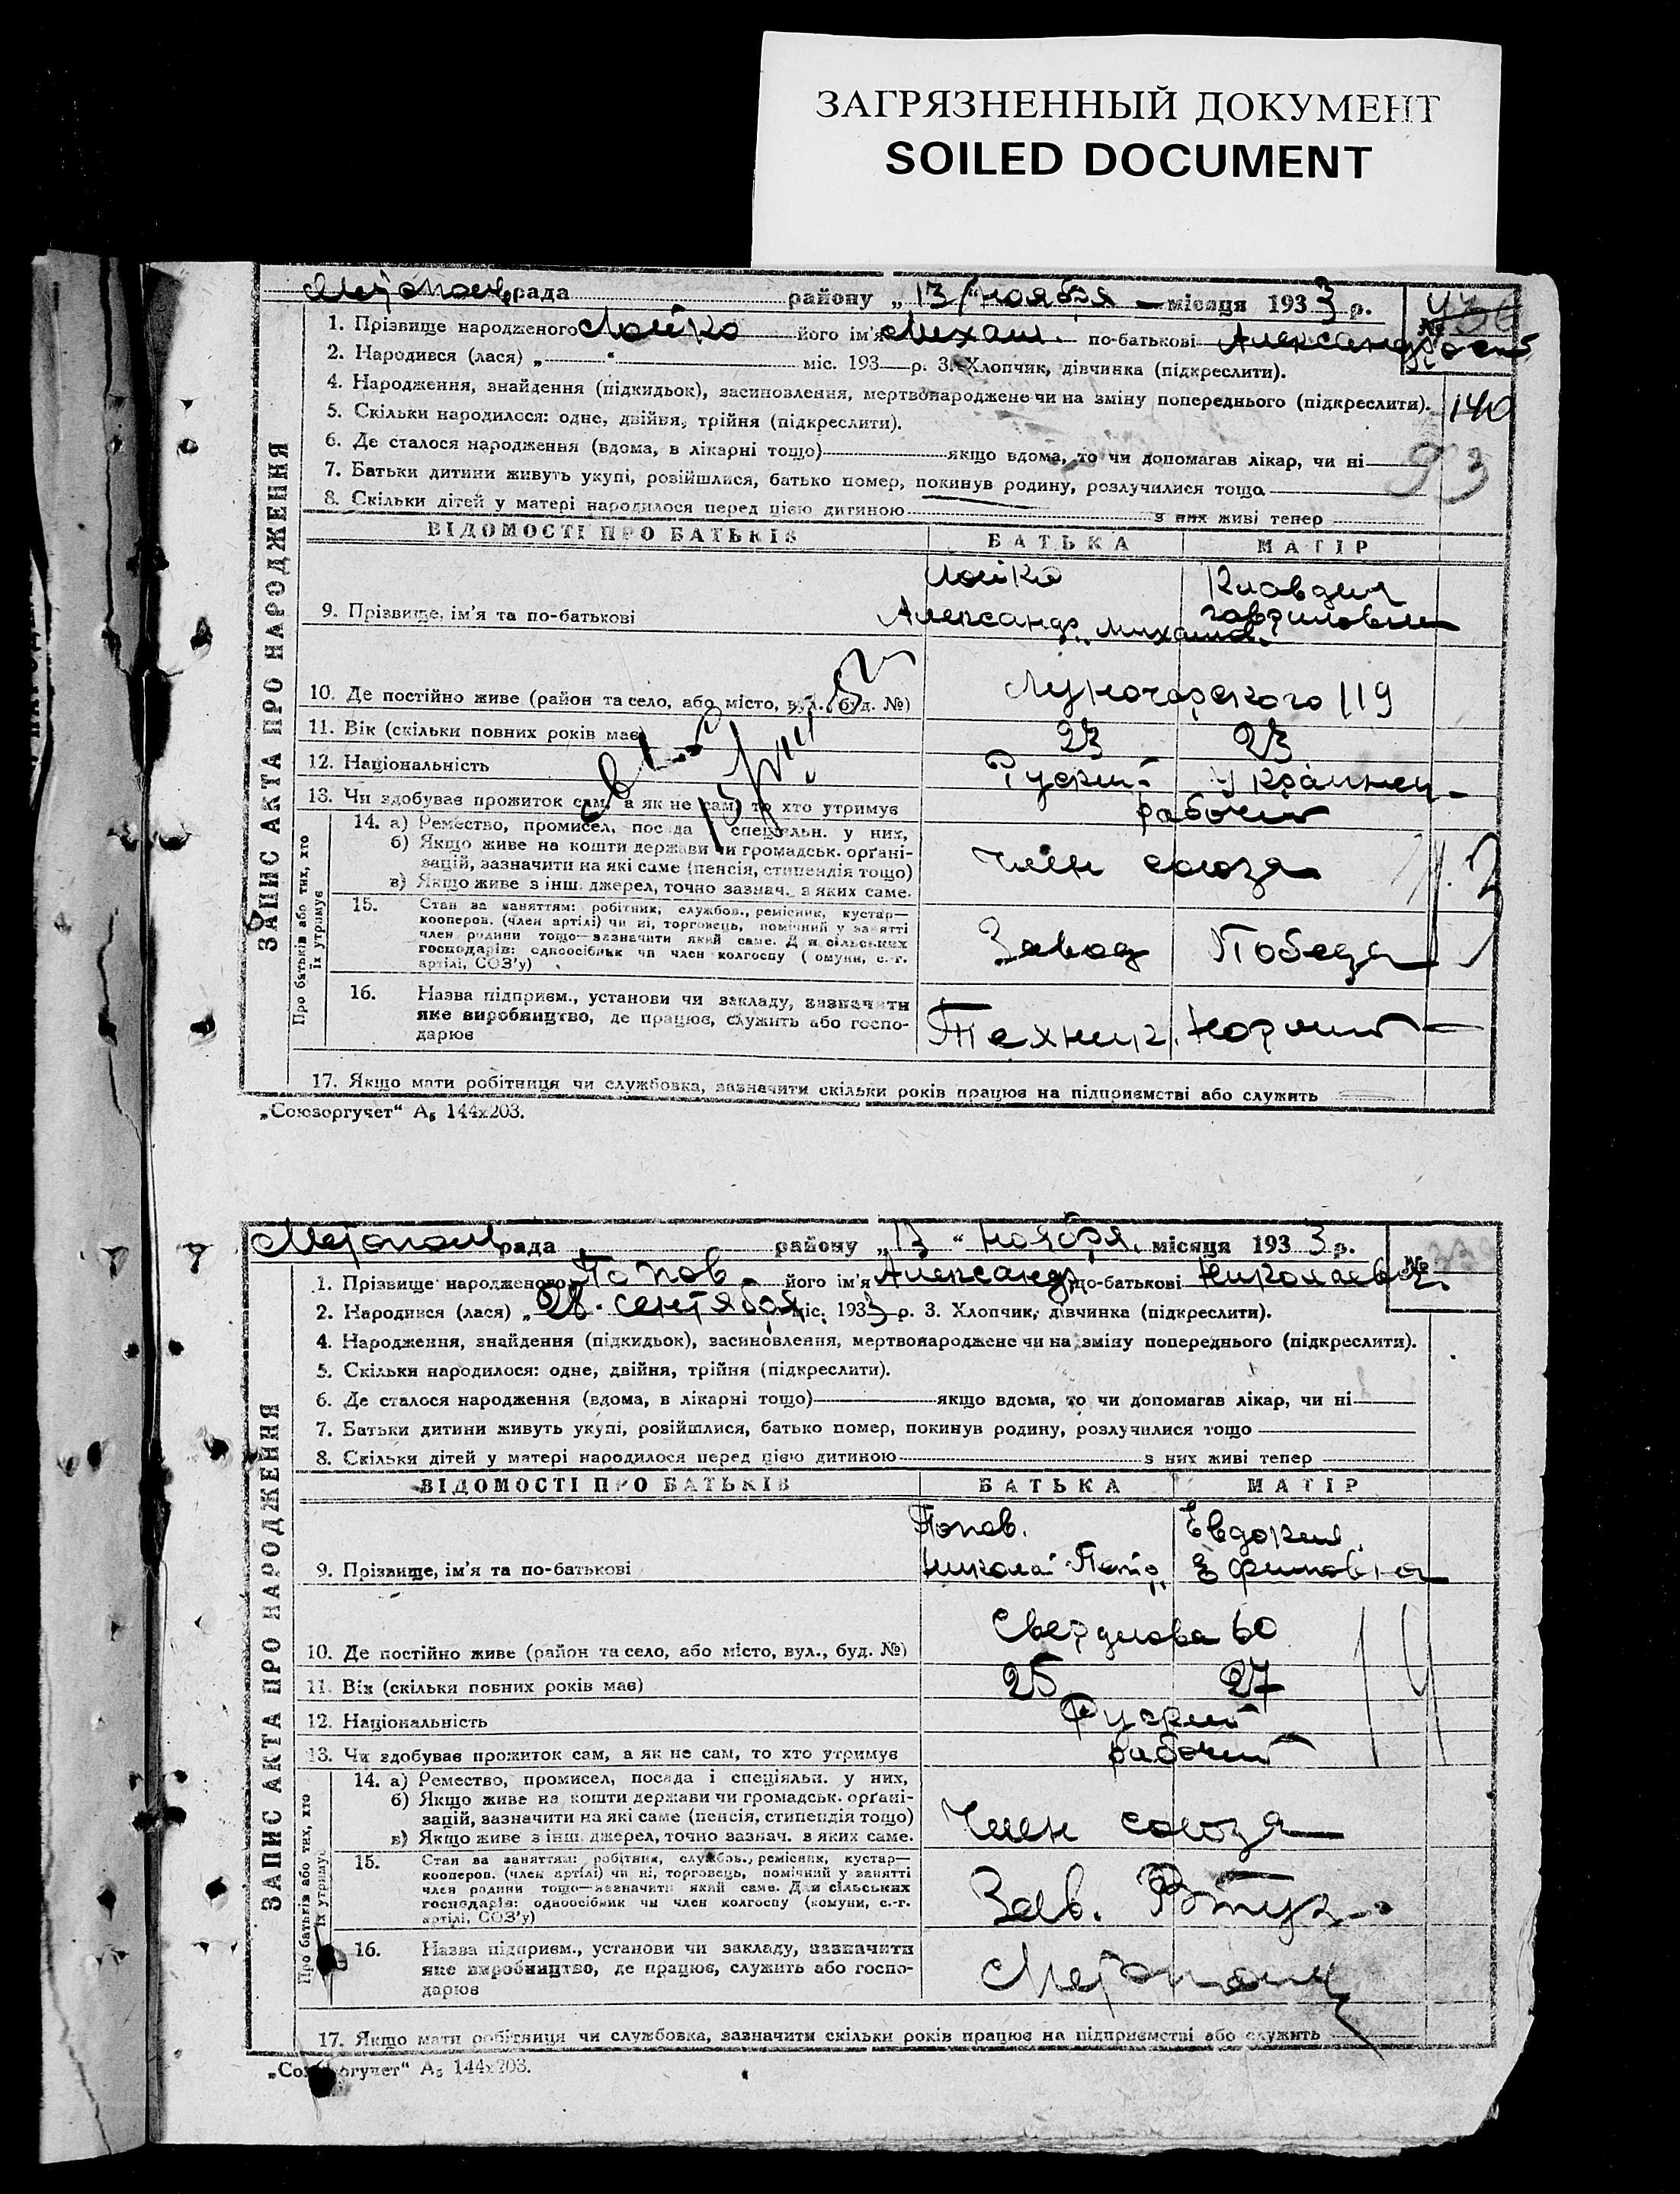 ЗАГРЯЗНЕННЫЙ ДОКУМЕНТ
SOILED DOCUMENT
рада району „13“ ноября місяця 1933 р. №
1. Прізвище народженого Лойко його ім'я Михаил. по-батькові Александров
2. Народився (лася) „ “ міс. 193 р. 3. Хлопчик, дівчинка (підкреслити).
4. Народження, знайдення (підкидьок), засиновлення, мертвонароджене чи на зміну попереднього (підкреслити). 140
5. Скільки народилося: одне, двійня, трійня (підкреслити).
6. Де сталося народження (вдома, в лікарні тощо) якщо вдома, то чи допомагав лікар, чи ні
93
7. Батьки дитини живуть укупі, розійшлися, батько помер, покинув родину, розлучилися тоща
8. Скільки дітей у матері народилося перед цією дитиною з них живі тепер
ЗАПИС АКТА ПРО НАРОДЖЕННЯ
ВІДОМОСТІ ПРО БАТЬКІВ БАТЬКА МАТІР
Лойко Клавдия
9. Прізвище, ім'я та по-батькові Александр Михайл. Гавриловна
10. Де постійно живе (район та село, або місто, вул., буд. №) Луночарского 119
11. Вік (скільки повних років має) 23 23
12. Національність Руский Украинец
13. Чи здобував прожиток сам, а як не сам, то хто утримує рабочий
Про батьків або тих, хто їх утримує
14. а) Ремество, промисел, посада і спеціяльн. у них,
б) Якщо живе на кошти держави чи громадськ. орґані-
зацій, зазначити на які саме (пенсія, стипендія тощо) член союза
в) Якщо живе з інш. джерел, точно зазнач. з яких саме.
15. Стан за заняттям: робітник, службов., ремісник, кустар—
кооперов. (член артілі) чи ні, торговець, помічний у занятті
член родини тощо—зазначити який саме. Для сільських Завод Победа
господарів: одноосібник чи член колгоспу (комуни, с.-г.
артілі, СОЗ'у)
16. Назва підприєм., установи чи закладу, зазначити
яке виробництво, де працює, служить або госпо-
дарює
17. Якщо мати робітниця чи службовка, зазначити скільки років працює на підприємстві або служить
„Союзоргучет“ А5 144х203.
рада району „13“ ноября. місяця 1933 р. №
1. Прізвище народженого Попов його ім'я Александр по-батькові Николаев.
2. Народився (лася) „28. сентября міс. 1933 р. 3. Хлопчик, дівчинка (підкреслити).
4. Народження, знайдення (підкидьок), засиновлення, мертвонароджене чи на зміну попереднього (підкреслити).
5. Скільки народилося: одне, двійня, трійня (підкреслити).
6. Де сталося народження (вдома, в лікарні тощо) якщо вдома, то чи допомагав лікар, чи ні
7. Батьки дитини живуть укупі, розійшлися, батько помер, покинув родину, розлучилися тощо
8. Скільки дітей у матері народилося перед цією дитиною з них живі тепер
ЗАПИС АКТА ПРО НАРОДЖЕННЯ
ВІДОМОСТІ ПРО БАТЬКІВ БАТЬКА МАТІР
Попов. Евдокия
9. Прізвище, ім'я та по-батькові Николай Петр. Эфимовна
10. Де постійно живе (район та село, або місто, вул., буд. №) Свердлова 60
11. Вік (скільки повних років має) 25 27
12. Національність Руский
13. Чи здобував прожиток сам, а як не сам, то хто утримує рабочий
Про батьків або тих, хто їх утримує
14. а) Ремество, промисел, посада і спеціяльн. у них,
б) Якщо живе на кошти держави чи громадськ. орґані-
зацій, зазначити на які саме (пенсія, стипендія тощо) член союза
в) Якщо живе з інш. джерел, точно зазнач. з яких саме.
15. Стан за заняттям: робітник, службов., ремісник, кустар—
кооперов. (член артілі) чи ні, торговець, помічний у занятті
член родини тощо—зазначити який саме. Для сільських Зав.
господарів: одноосібник чи член колгоспу (комуни, с.-г.
артілі, СОЗ'у)
16. Назва підприєм., установи чи закладу, зазначити
яке виробництво, де працює, служить або госпо-
дарює
17. Якщо мати робітниця чи службовка, зазначити скільки років працює на підприємстві або служить
„Союзоргучет“ А5 144х203.